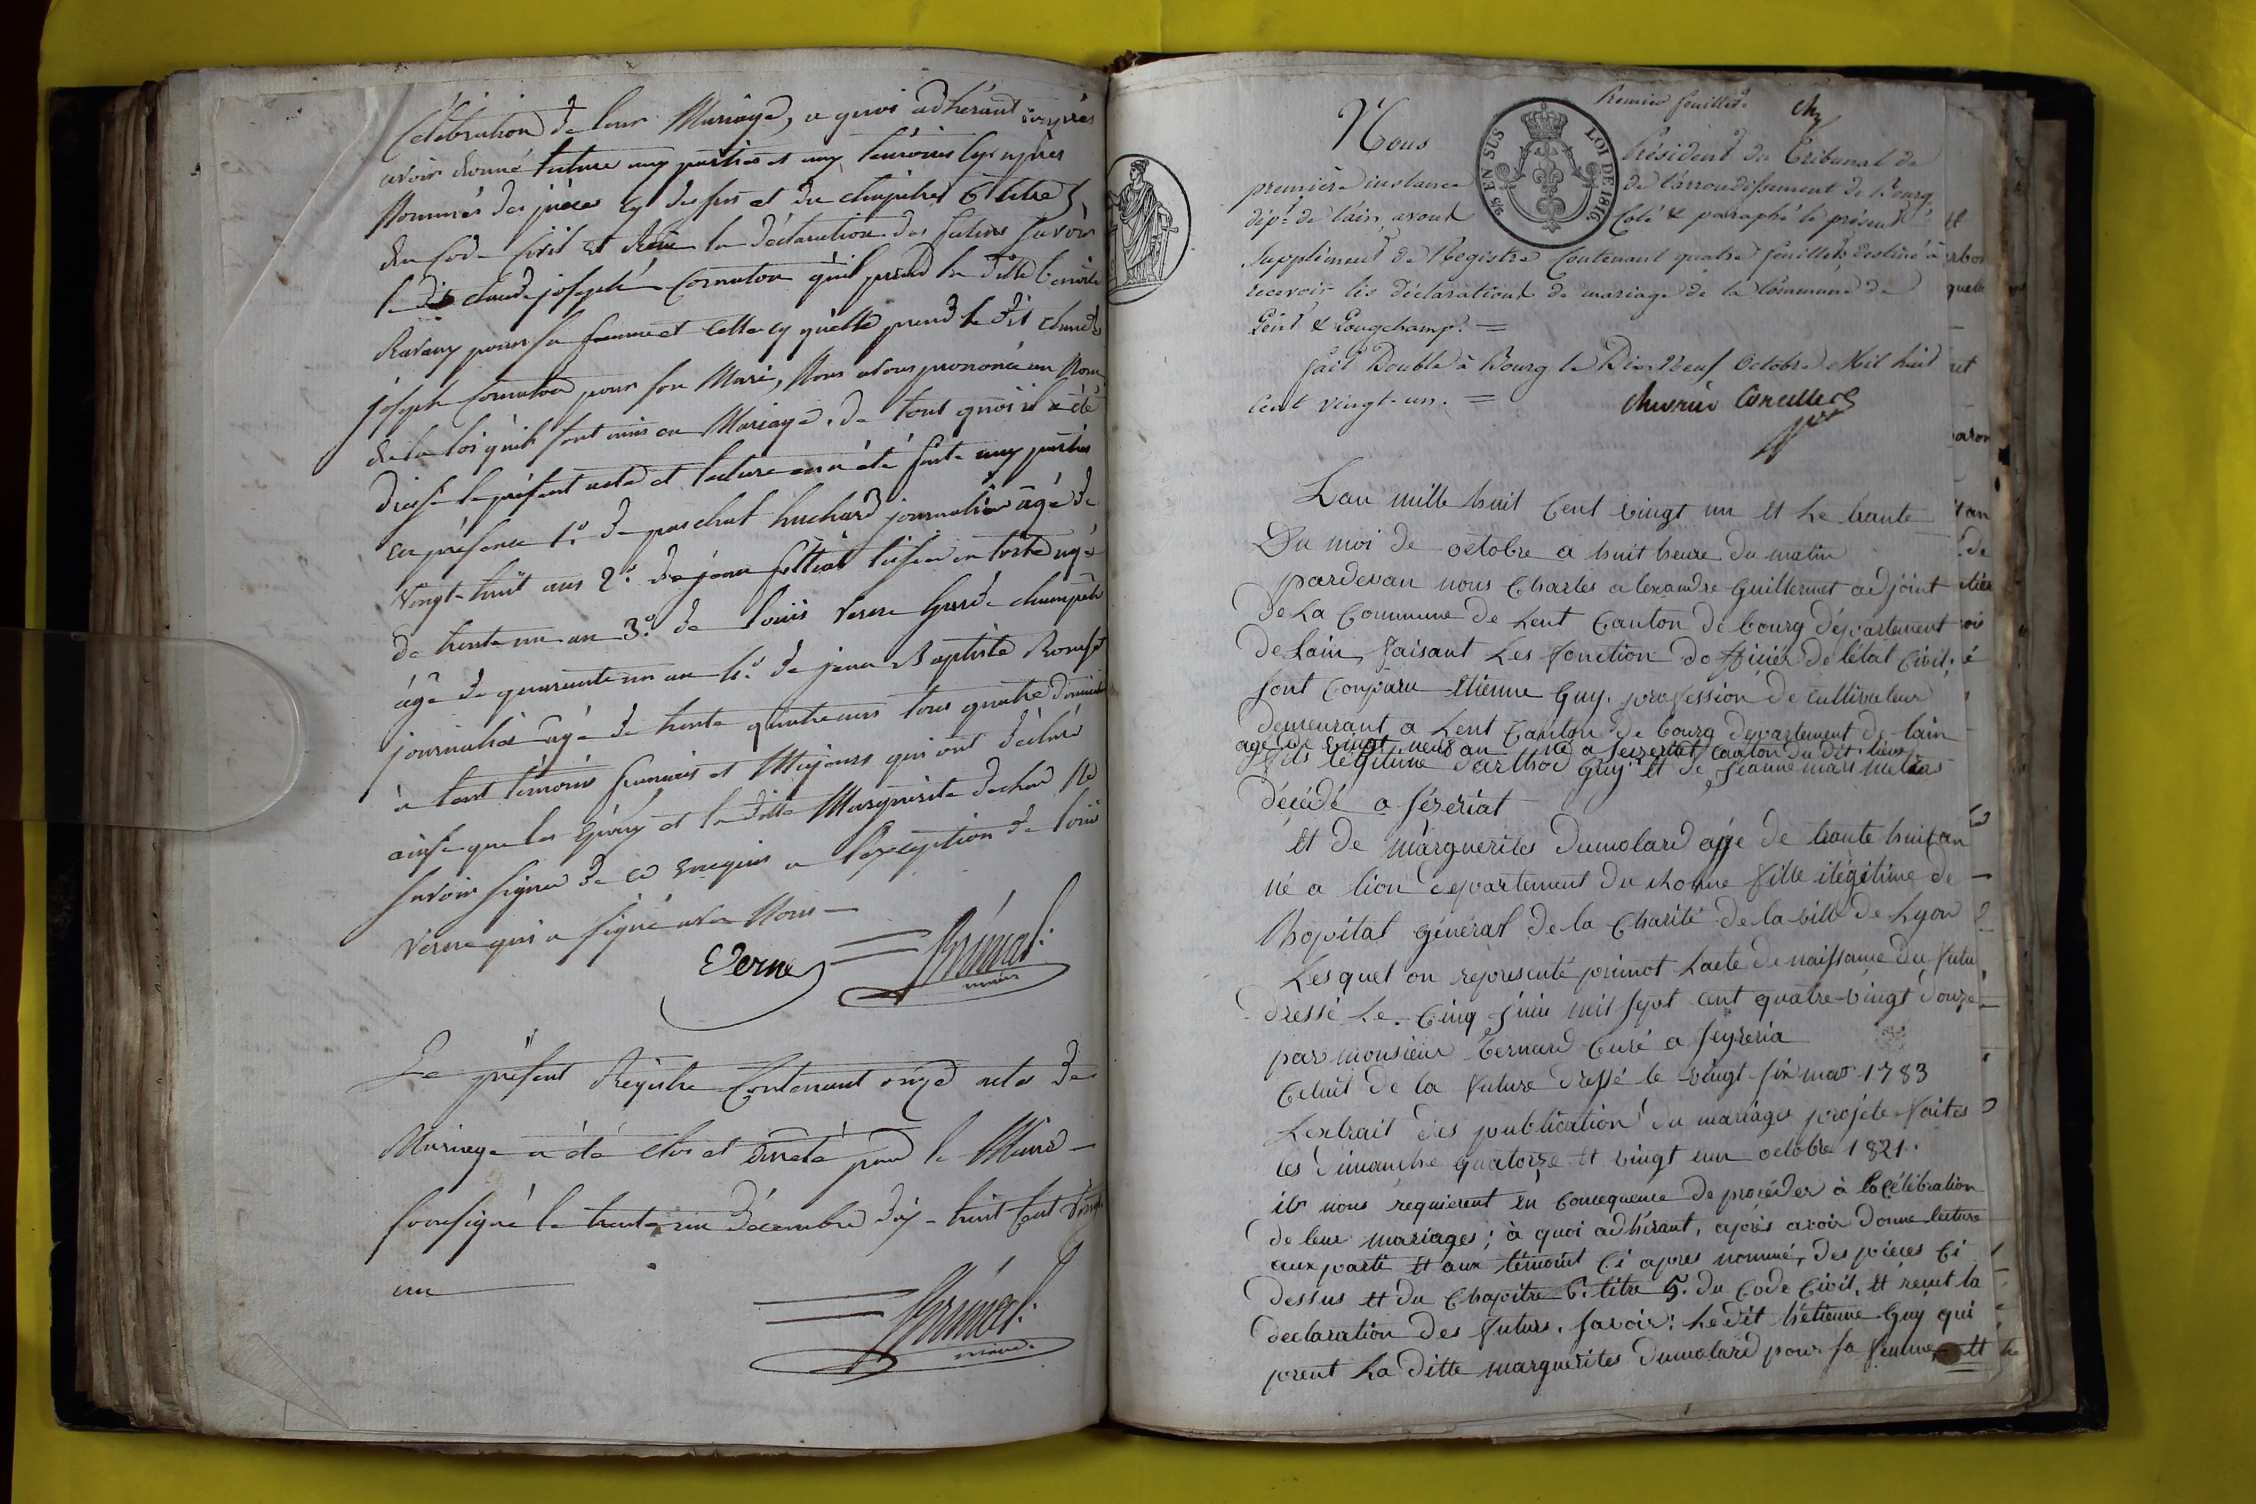 Célébration de leur Mariage, a quoi adhérant après
avoir donné lecture aux parties et aux témoins cy après
Nommés des pièces cy dessus et du chapitre 6 titre 5
du Code Civil et reçu la déclaration des futurs savoir
le dit claude joseph Cornuton qu'il prend la ditte Benoite
Ravaux pour sa femme et celle cy qu'elle prend le dit claude
joseph Cornuton pour son Mari, Nous avons prononcé au Nom
de la loi qu'ils sont unis en Mariage. de tout quoi il a été
dressé le présent acte et lecture en a été faite aux parties
en présence 1.º de paschal huchard journalier âgé de
vingt-huit ans 2.º de jean tissier en toile agé
de trente un an 3.º de louis verne garde champêtre
âgé de quarante un an 4.º de jean Baptiste
journalier âgé de trente quatre ans tous quatre
a tant témoins français et Majeurs qui ont déclaré
ainsi que les époux et la ditte Marguerite Ne
savoir signer de ce enquis a l'exception de louis
verne qui a signé avec Nous —
Verne
maire
Le présent Régistre Contenant onze actes de
Mariage a été clos et arrêté par le Maire —
soussigné le trente un décembre dix-huit cent vingt
un
maire
Premier feuillet.
Nous Président du Tribunal de
première instance de l'arrondissement de Bourg
dép.t de l'ain, avons Coté & paraphé le présent
5/5 EN SUS LOI DE 1816
Supplément de Registre Contenant quatre feuillets destiné à
recevoir les déclarations de mariage de la Commune de
Lent & Longchamp. =
fait Double à Bourg le Dix Neuf Octobre Mil huit
Cent vingt-un. =
Chevrier Conseiller
Lan mille huit Cent vingt un et Le trante
Du moi de octobre a huit heure du matin
pardevan nous Charles alexandre Guillermet adjoint
De La Commune de Lent Canton de bourg département
de Lain, faisant Les fonction doffficier de létat Civil.
sont Conparu Etienne Guy. profession de cultivateur
demeurant a Lent Canton de bourg departement de lain
age de vingt neuf an né a seizeriat Canton du dit lieux
fils legitime Guy et de jeanne mari
décédé a sézériat
Et de marguerites Dumolard age de trante huit an
né a lion département du rhonne fille ilégitime de
lhopital général de la Charité de la ville de Lyon
Lesquel on représenté primot Lacte de naissance du futu
dressé Le. Cinq juin mil sept cent quatre-vingt douze
par monsieur Bernard Curé a seyzeria
Celuit de la future dressé le vingt-six mars 1783
Lextrait des publication du mariages projete faites
les dimanche quatorze et vingt un octobre 1821.
ils nous requierent en Concequence de procéder à la Célébration
de leur mariages; à quoi adhérant, après avoir donne lecture
aux parti et aux témoint Ci apres nommé, des pièces Ci
dessus et du Chapitre 6. titre 5. du Code Civil, et reçut la
declaration des futurs. savoir: Le dit hétienne Guy qui
prent La ditte marguerites Dumolard pour sa femme, et